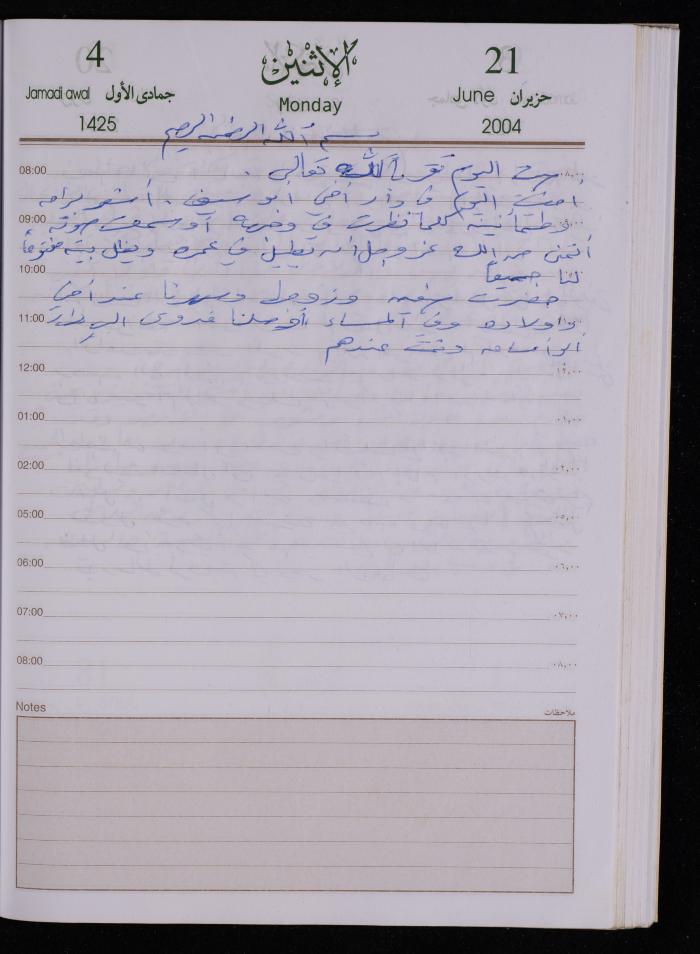 4 الإثنين 21
Jamadi awal جمادى الأول Monday June حزيران
1425 2004
بسم الله الرحمن الرحيم
08:00 صمت اليوم تقرباً لله تعالى . ٠٨:٠٠
أمضيت اليوم في دار أخي أبو سيف . أشعر براحه
09:00 وطمأنينة كلما نظرت في وجهه أو سمعت صوته
أتمنى من الله عز وجل أن يطيل في عمره ويظل بيته مفتوحاً
10:00 لنا جميعاً
حضرت وزوجها وسهرنا عند أخي
11:00 وأولاده وفي المساء أوصلنا فدوى إلى دار
أبو أسامه ونمت عندهم
12:00 ١٢:٠٠
01:00 ٠١:٠٠
02:00 ٠٢:٠٠
05:00 ٠٥:٠٠
06:00 ٠٦:٠٠
07:00 ٠٧:٠٠
08:00 ٠٨:٠٠
Notes ملاحظات